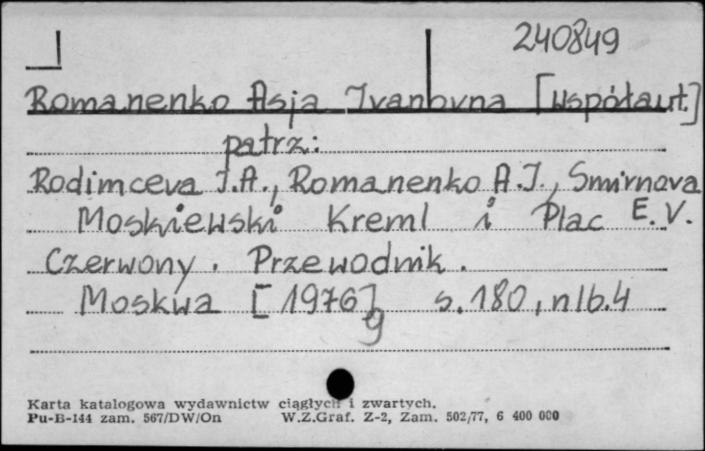 240849
Romanenko Asja Ivanovna [współaut.]
patrz:
Rodimceva I.A., Romanenko A.I., Smirnova E.V.
Moskiewski Kreml i Plac
Czerwony. Przewodnik.
Moskwa [1976] s. 180, nlb. 4
9
Karta katalogowa wydawnictw ciągłych i zwartych.
Pu-B-144 zam. 567/DW/On W.Z.Graf. Z-2, Zam. 502/77, 6 400 000